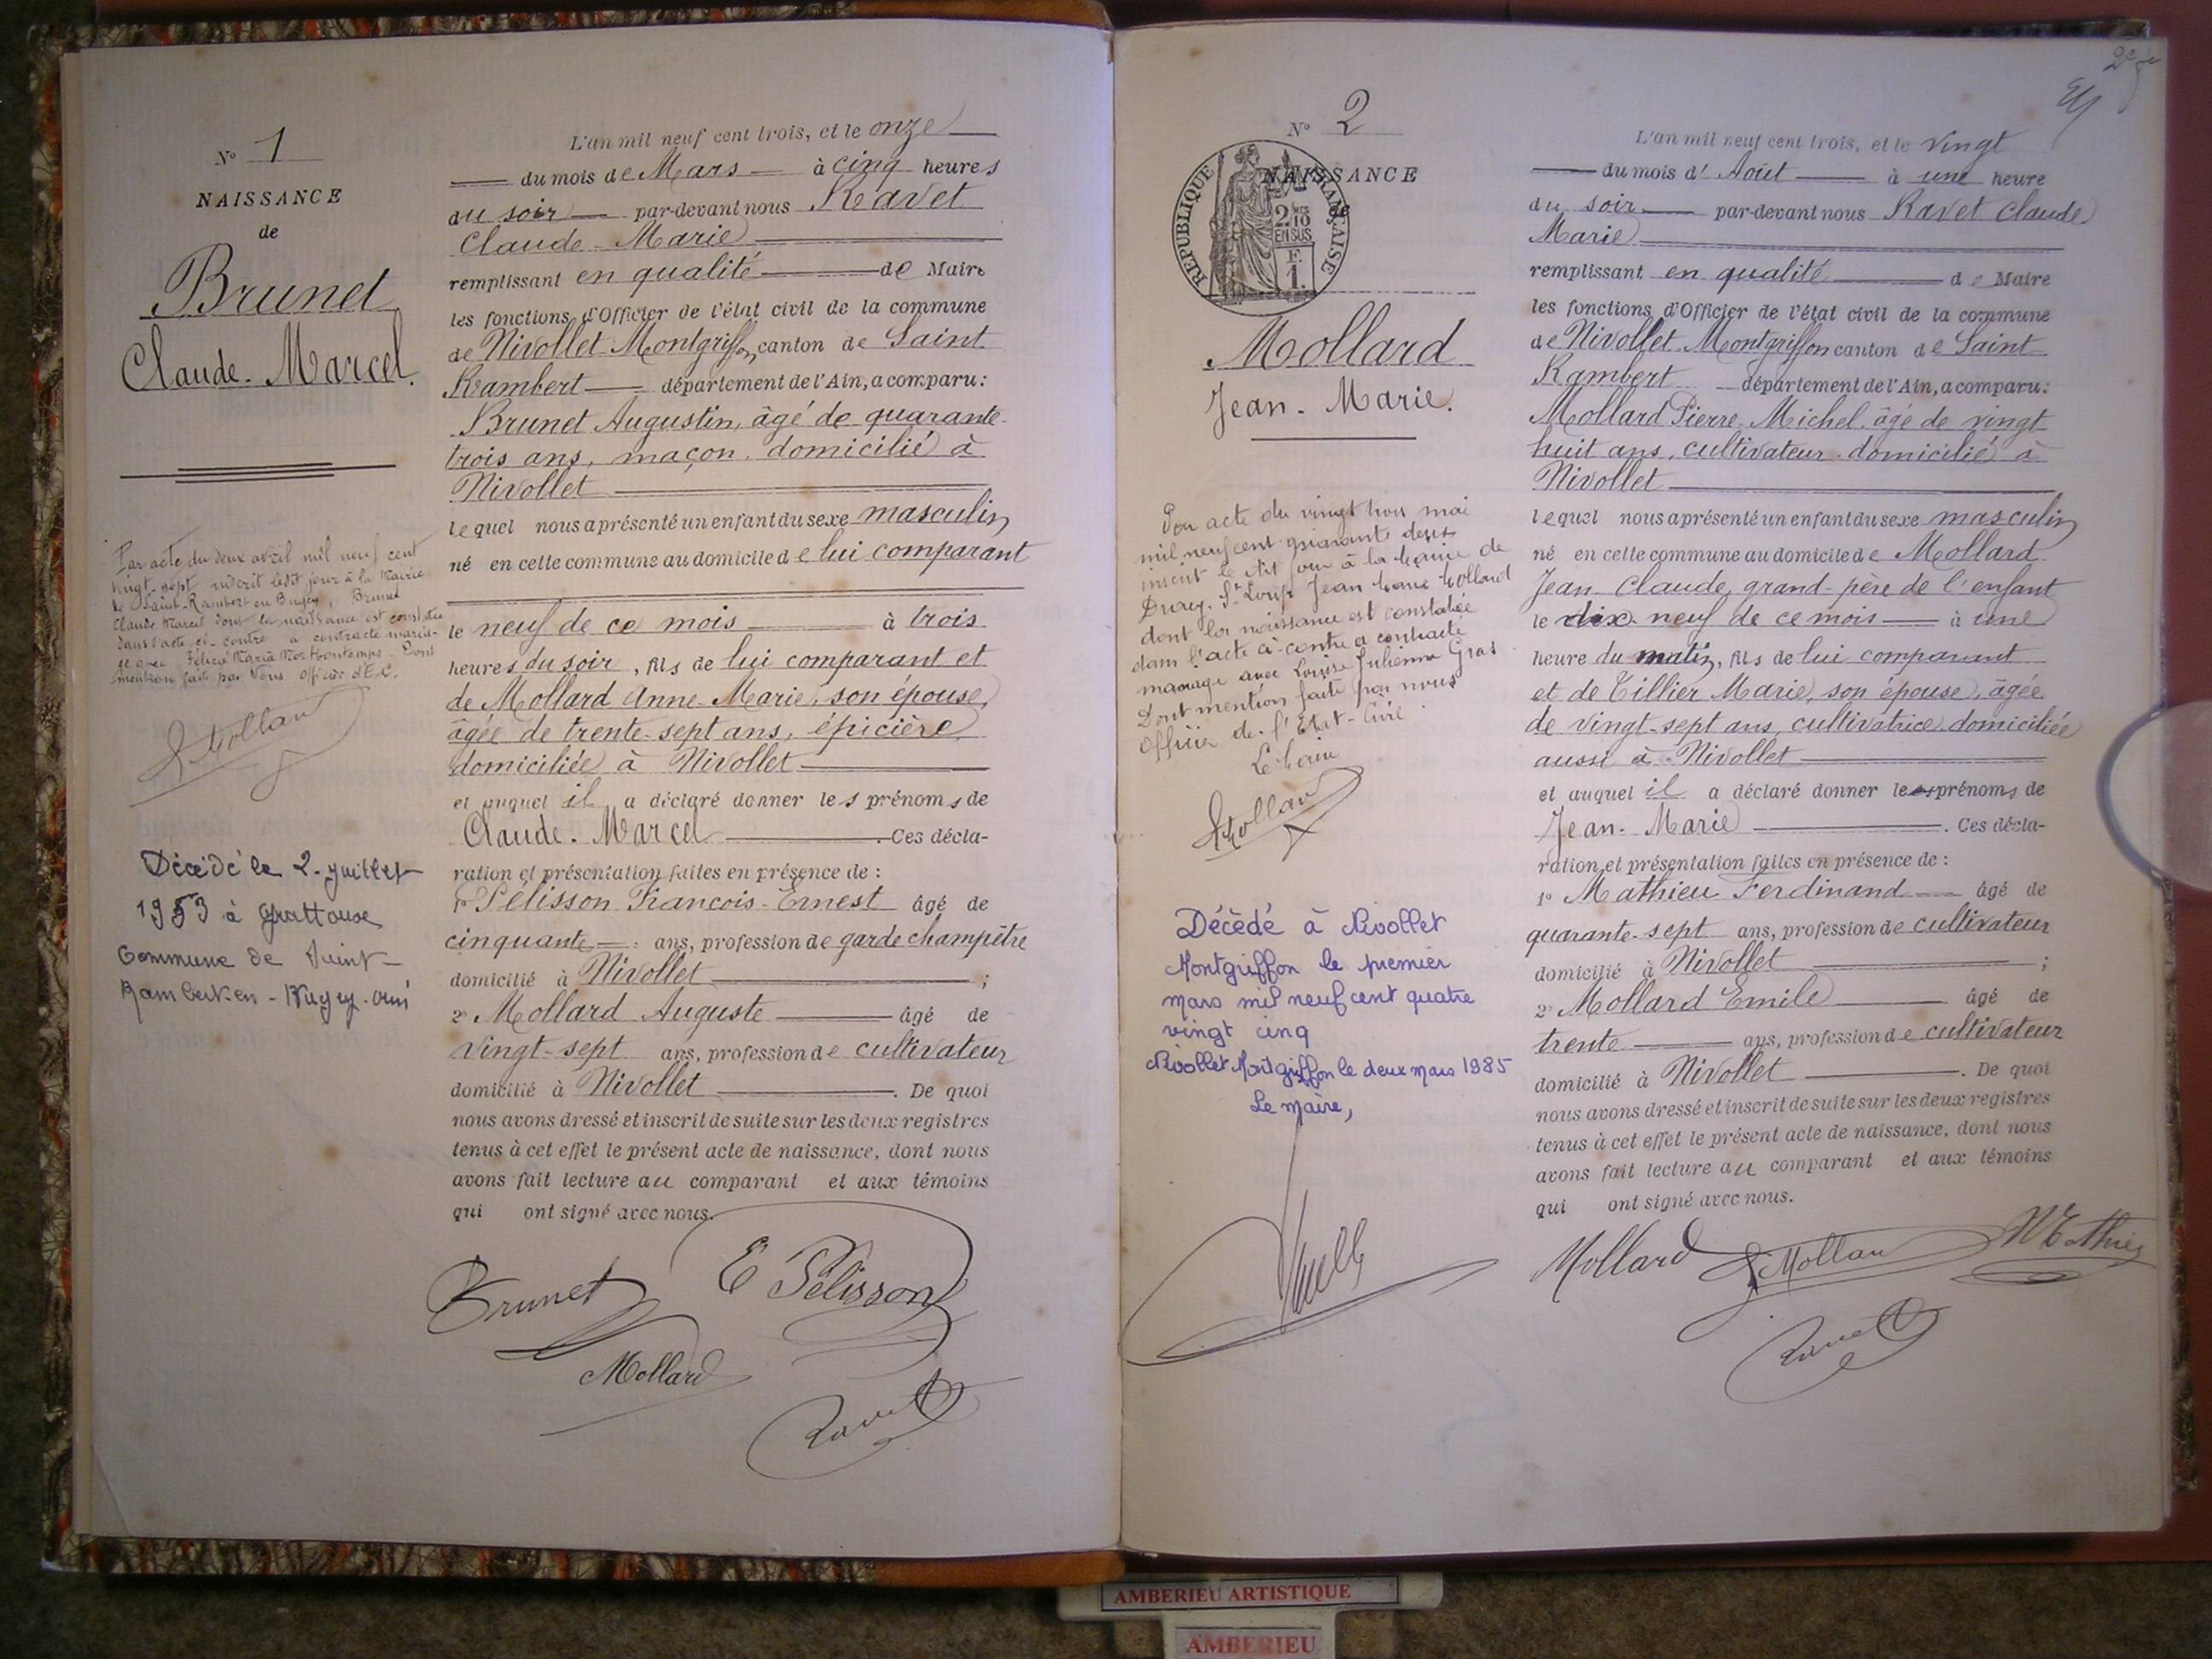 N° 1
NAISSANCE
de
Brunet
Claude-Marcel.
Par acte du deux avril mil neuf cent
vingt-sept inscrit ledit jour à la Mairie
de Saint-Rambert en Bugey, Brunet
Claude Marcel dont la naissance est constatée
dans l'acte ci-contre a contracté maria-
ge avec Félicie Maria Bontemps. Dont
mention faite par Nous officier d'E.C.
Décédé le 2 juillet
1953 à Grattoux
Commune de Saint-
Rambert-en-Bugey-Ain
L'an mil neuf cent trois, et le onze
du mois de Mars à cinq heures
du soir par-devant nous Ravet
Claude-Marie
remplissant en qualité de Maire
les fonctions d'Officier de l'état civil de la commune
de Nivollet-Montgriffon, canton de Saint
Rambert département de l'Ain, a comparu:
Brunet Augustin, âgé de quarante-
trois ans, maçon, domicilié à
Nivollet
lequel nous a présenté un enfant du sexe masculin
né en cette commune au domicile de lui comparant
le neuf de ce mois à trois
heures du soir, fils de lui comparant et
de Mollard Anne-Marie, son épouse,
âgée de trente-sept ans, épicière
domiciliée à Nivollet
et auquel il a déclaré donner les prénoms de
Claude-Marcel. Ces décla-
ration et présentation faites en présence de :
1° Pélisson François-Ernest âgé de
cinquante ans, profession de garde champêtre
domicilié à Nivollet ;
2° Mollard Auguste âgé de
vingt-sept ans, profession de cultivateur
domicilié à Nivollet. De quoi
nous avons dressé et inscrit de suite sur les deux registres
tenus à cet effet le présent acte de naissance, dont nous
avons fait lecture au comparant et aux témoins
qui ont signé avec nous.
Brunet E Pélisson
Mollard
Ravet
N° 2
NAISSANCE
de
REPUBLIQUE FRANÇAISE
2/10 EN SUS
F. 1.
Mollard
Jean-Marie.
Par acte du vingt trois mai
mil neuf cent quarante deux
inscrit le dit jour à la Mairie de
St Loup Jean Marie Mollard
dont la naissance est constatée
dans l'acte ci-contre a contracté
mariage avec Louise Julienne Gras.
Dont mention faite par nous
officier de l'Etat-Civil.
Le Maire
Décédé à Nivollet
Montgriffon le premier
mars mil neuf cent quatre
vingt cinq
Nivollet Montgriffon le deux mars 1985
Le Maire,
L'an mil neuf cent trois, et le vingt
du mois d'Août à une heure
du soir par-devant nous Ravet Claude
Marie
remplissant en qualité de Maire
les fonctions d'Officier de l'état civil de la commune
de Nivollet-Montgriffon canton de Saint
Rambert département de l'Ain, a comparu:
Mollard Pierre-Michel, âgé de vingt
huit ans, cultivateur domicilié à
Nivollet
lequel nous a présenté un enfant du sexe masculin
né en cette commune au domicile de Mollard
Jean-Claude, grand-père de l'enfant
le dix-neuf de ce mois à une
heure du matin, fils de lui comparant
et de Tillier Marie, son épouse, âgée
de vingt-sept ans, cultivatrice domiciliée
aussi à Nivollet
et auquel il a déclaré donner les prénoms de
Jean-Marie. Ces décla-
ration et présentation faites en présence de :
1° Mathieu Ferdinand âgé de
quarante-sept ans, profession de cultivateur
domicilié à Nivollet ;
2° Mollard Emile âgé de
trente ans, profession de cultivateur
domicilié à Nivollet. De quoi
nous avons dressé et inscrit de suite sur les deux registres
tenus à cet effet le présent acte de naissance, dont nous
avons fait lecture au comparant et aux témoins
qui ont signé avec nous.
Mollard
Ravet
AMBERIEU ARTISTIQUE
AMBERIEU